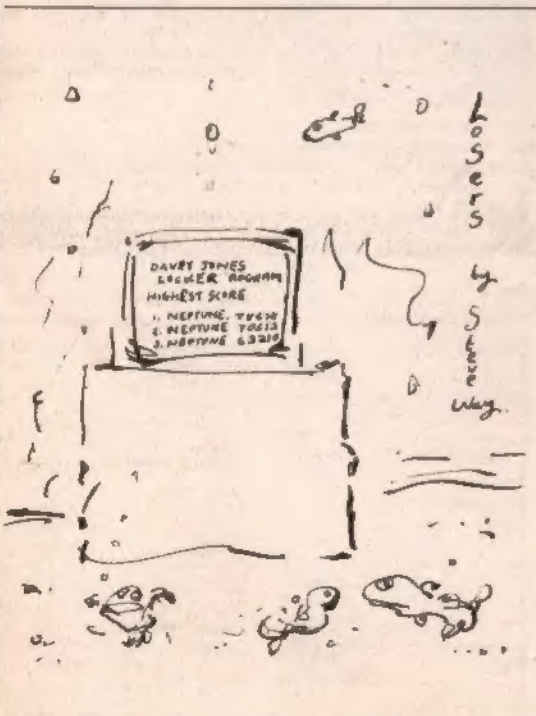 DAVEY JONES
LOCKER PROGRAM
HIGHEST SCORE
1. NEPTUNE.
2. NEPTUNE
3. NEPTUNE 63210
Losers by Steve Way.